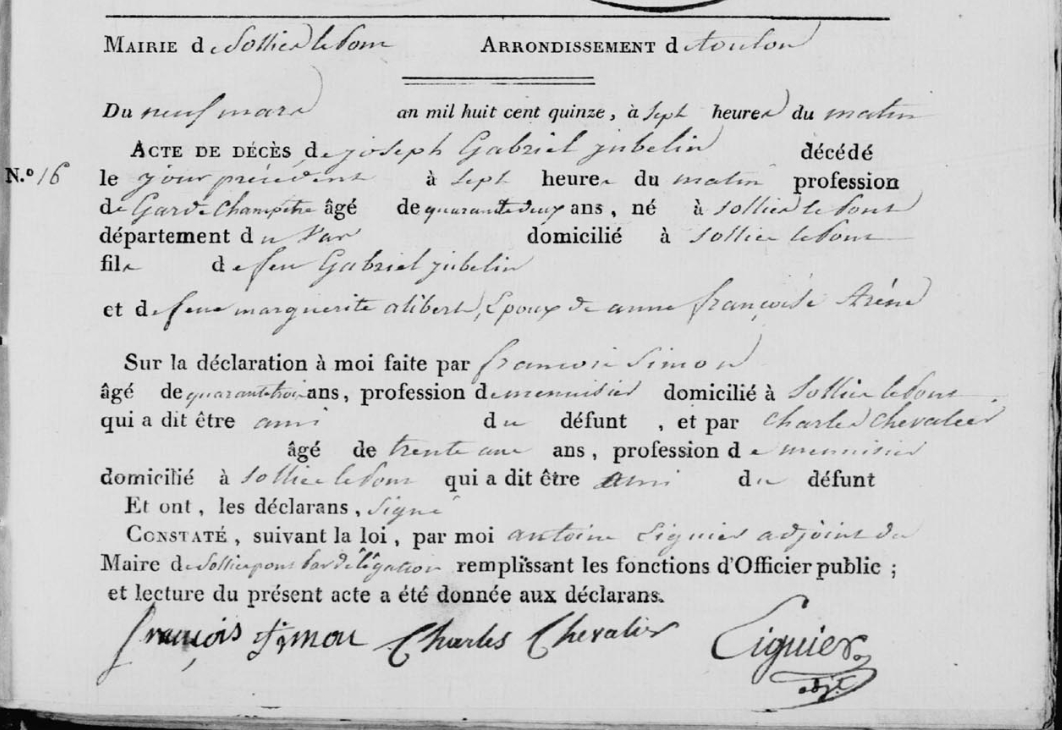 MAIRIE de Solliès le Pont ARRONDISSEMENT de toulon
Du neuf mars an mil huit cent quinze, à sept heures du matin
ACTE DE DÉCÈS, de joseph Gabriel jubelin décédé
N.º 16 le jour précédent à sept heures du matin profession
de Garde Champetre âgé de quarante deux ans, né à Sollies le Pont
département du Var domicilié à Sollies le Pont
fils de feu Gabriel jubelin
et de feue marguerite alibert, Epoux de anne françoise Aréne
Sur la déclaration à moi faite par francois Simon
âgé de quarante trois ans, profession de menuisier domicilié à Sollies le Pont
qui a dit être ami du défunt, et par Charles Chevalier
âgé de trente ans, profession de menuisier
domicilié à Sollies le Pont qui a dit être ami du défunt
Et ont, les déclarans, signé
CONSTATÉ, suivant la loi, par moi antoine Liguier adjoint du
Maire de Sollies pont par délégation remplissant les fonctions d'Officier public;
et lecture du présent acte a été donnée aux déclarans.
françois Simon Charles Chevalier Liguier
adjt